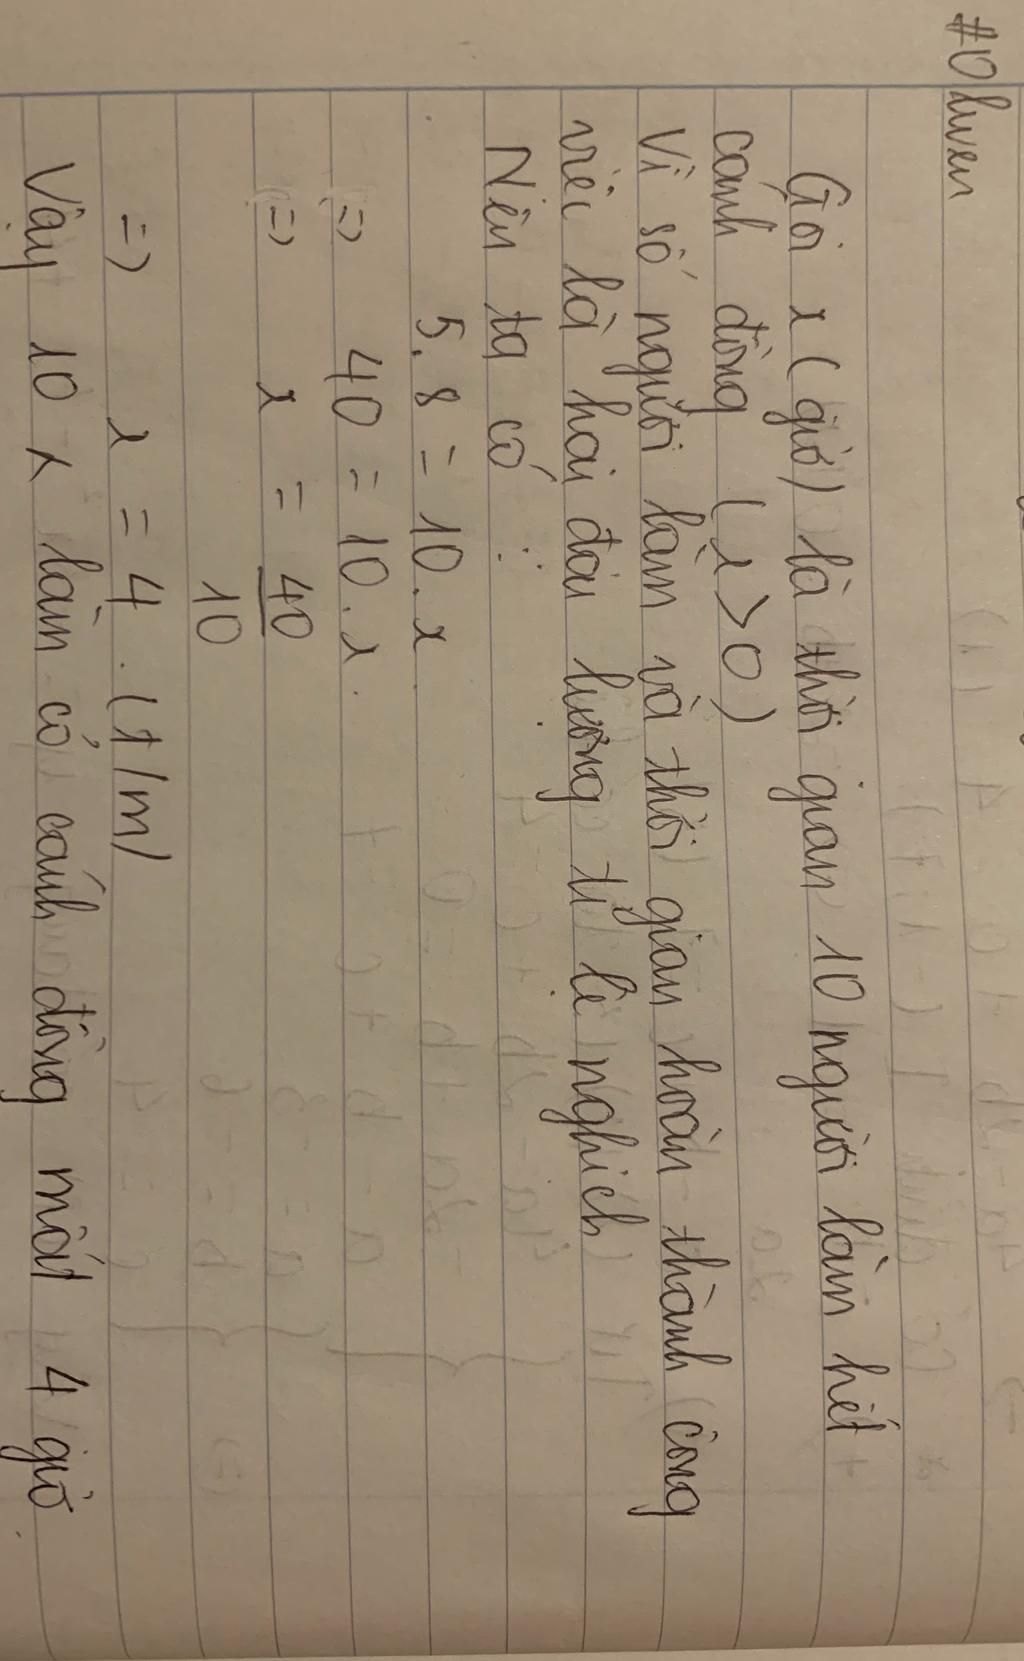 #Oluwen
Gọi x (giờ) là thời gian 10 người làm hết
cánh đồng (x > 0)
Vì số người làm và thời gian hoàn thành công
việc là hai đại lượng tỉ lệ nghịch
Nên ta có:
5.8 = 10.x
=> 40 = 10.x
=> x = 40/10
=> x = 4. (t/m)
Vậy 10 x làm cỏ cánh đồng mất 4 giờ